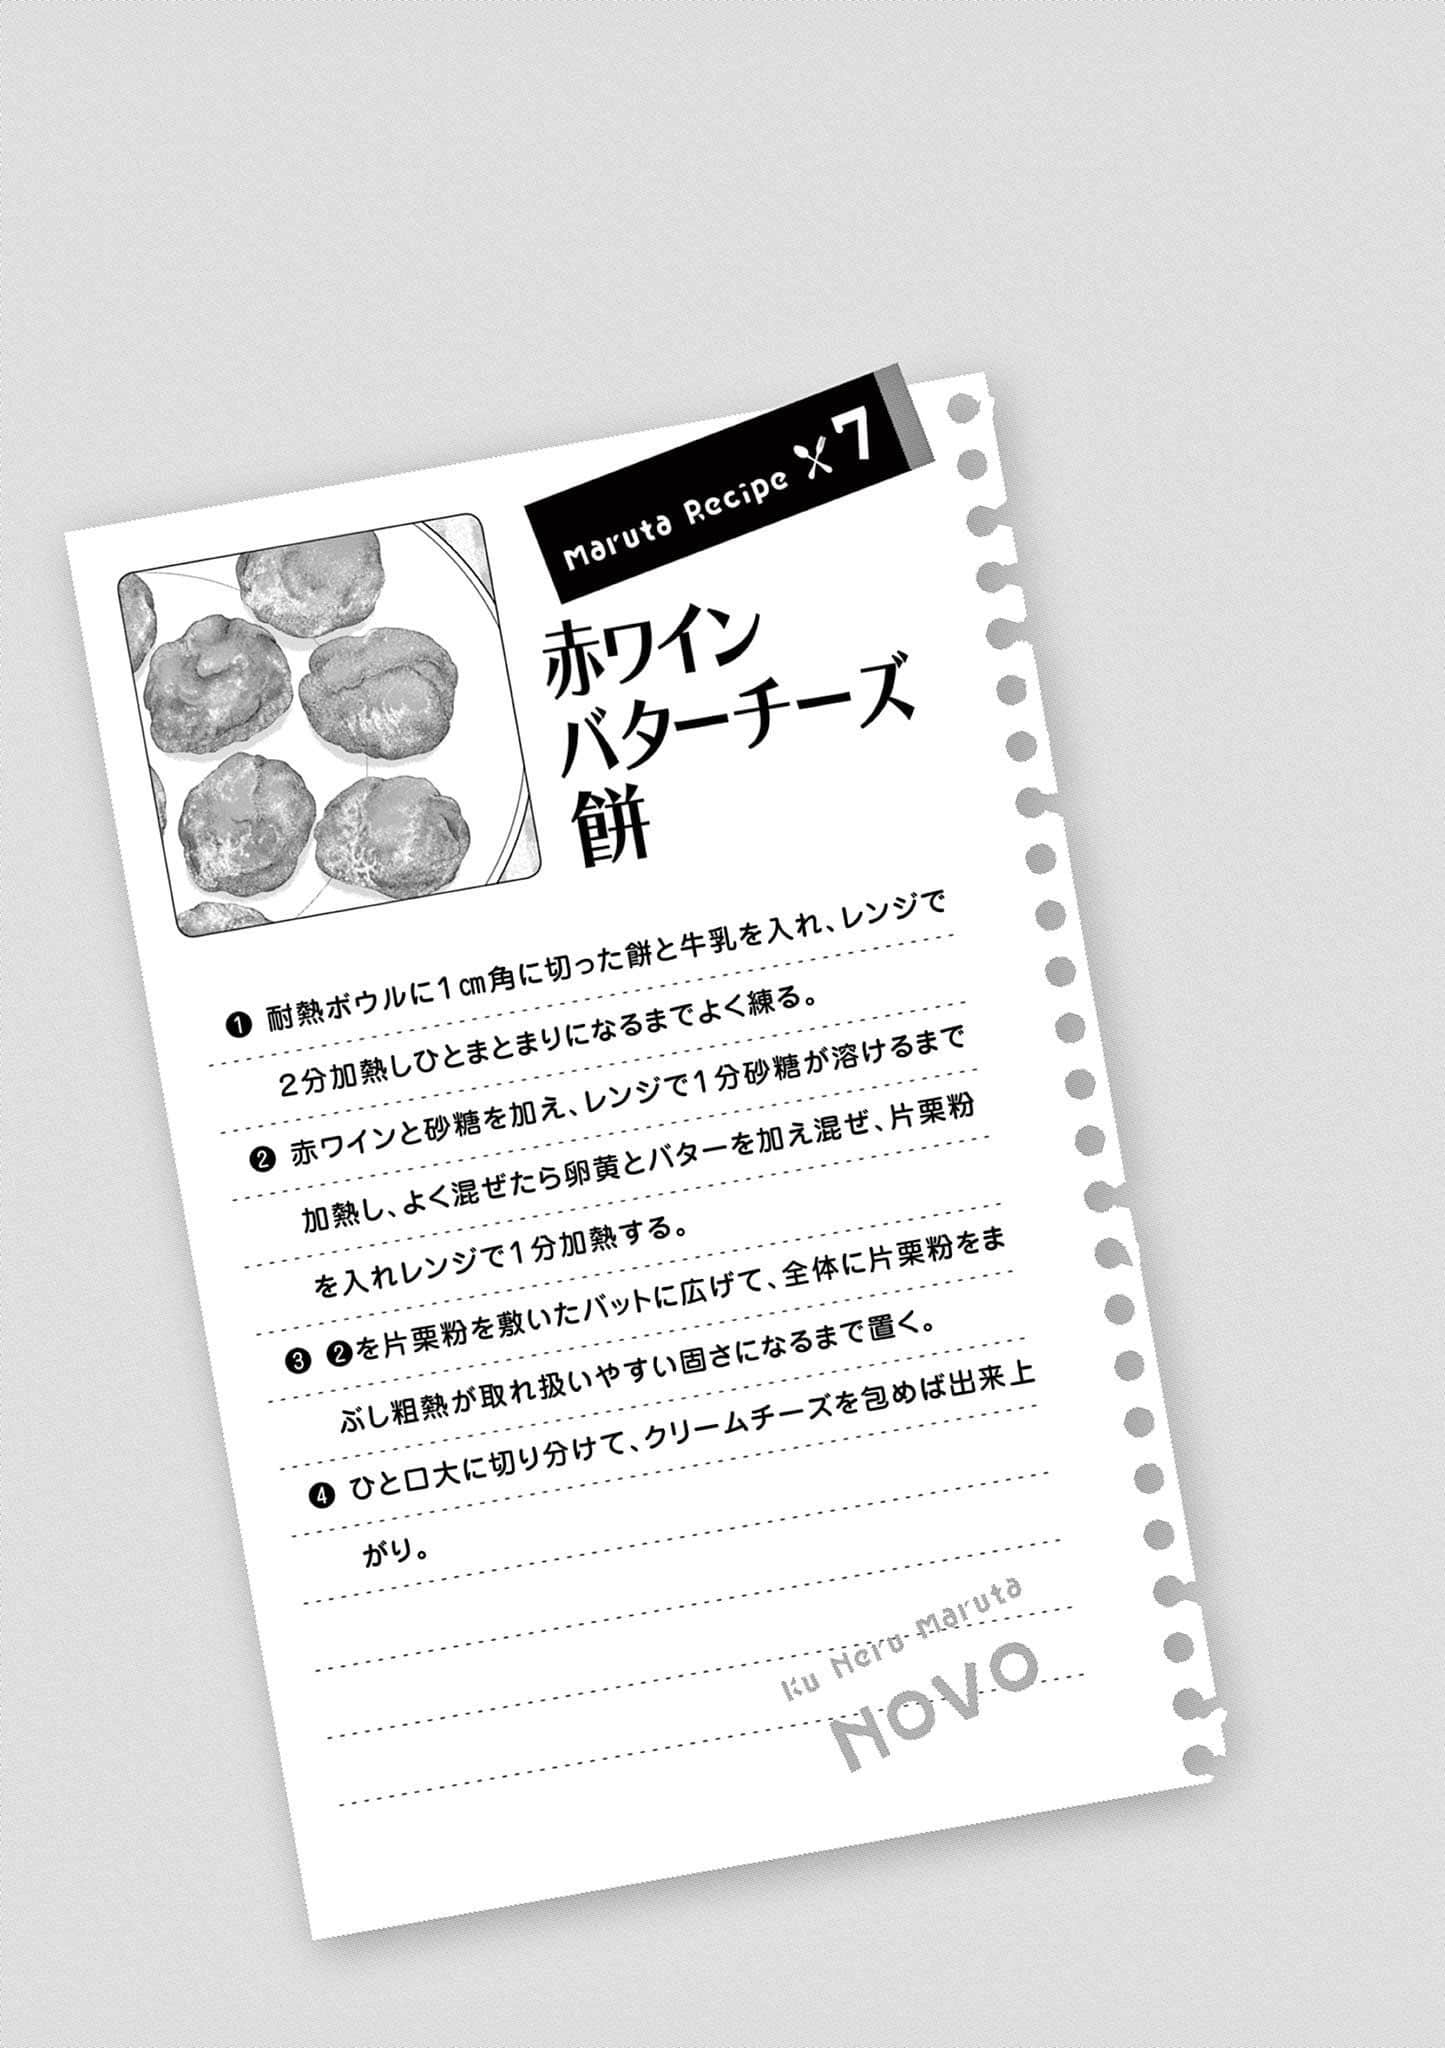 Maruta Recipe 7
赤ワイン
バターチーズ
餅
❶ 耐熱ボウルに1㎝角に切った餅と牛乳を入れ、レンジで
2分加熱しひとまとまりになるまでよく練る。
❷ 赤ワインと砂糖を加え、レンジで1分砂糖が溶けるまで
加熱し、よく混ぜたら卵黄とバターを加え混ぜ、片栗粉
を入れレンジで1分加熱する。
❸ ❷を片栗粉を敷いたバットに広げて、全体に片栗粉をま
ぶし粗熱が取れ扱いやすい固さになるまで置く。
❹ ひと口大に切り分けて、クリームチーズを包めば出来上
がり。
Ku Neru Maruta
NOVO